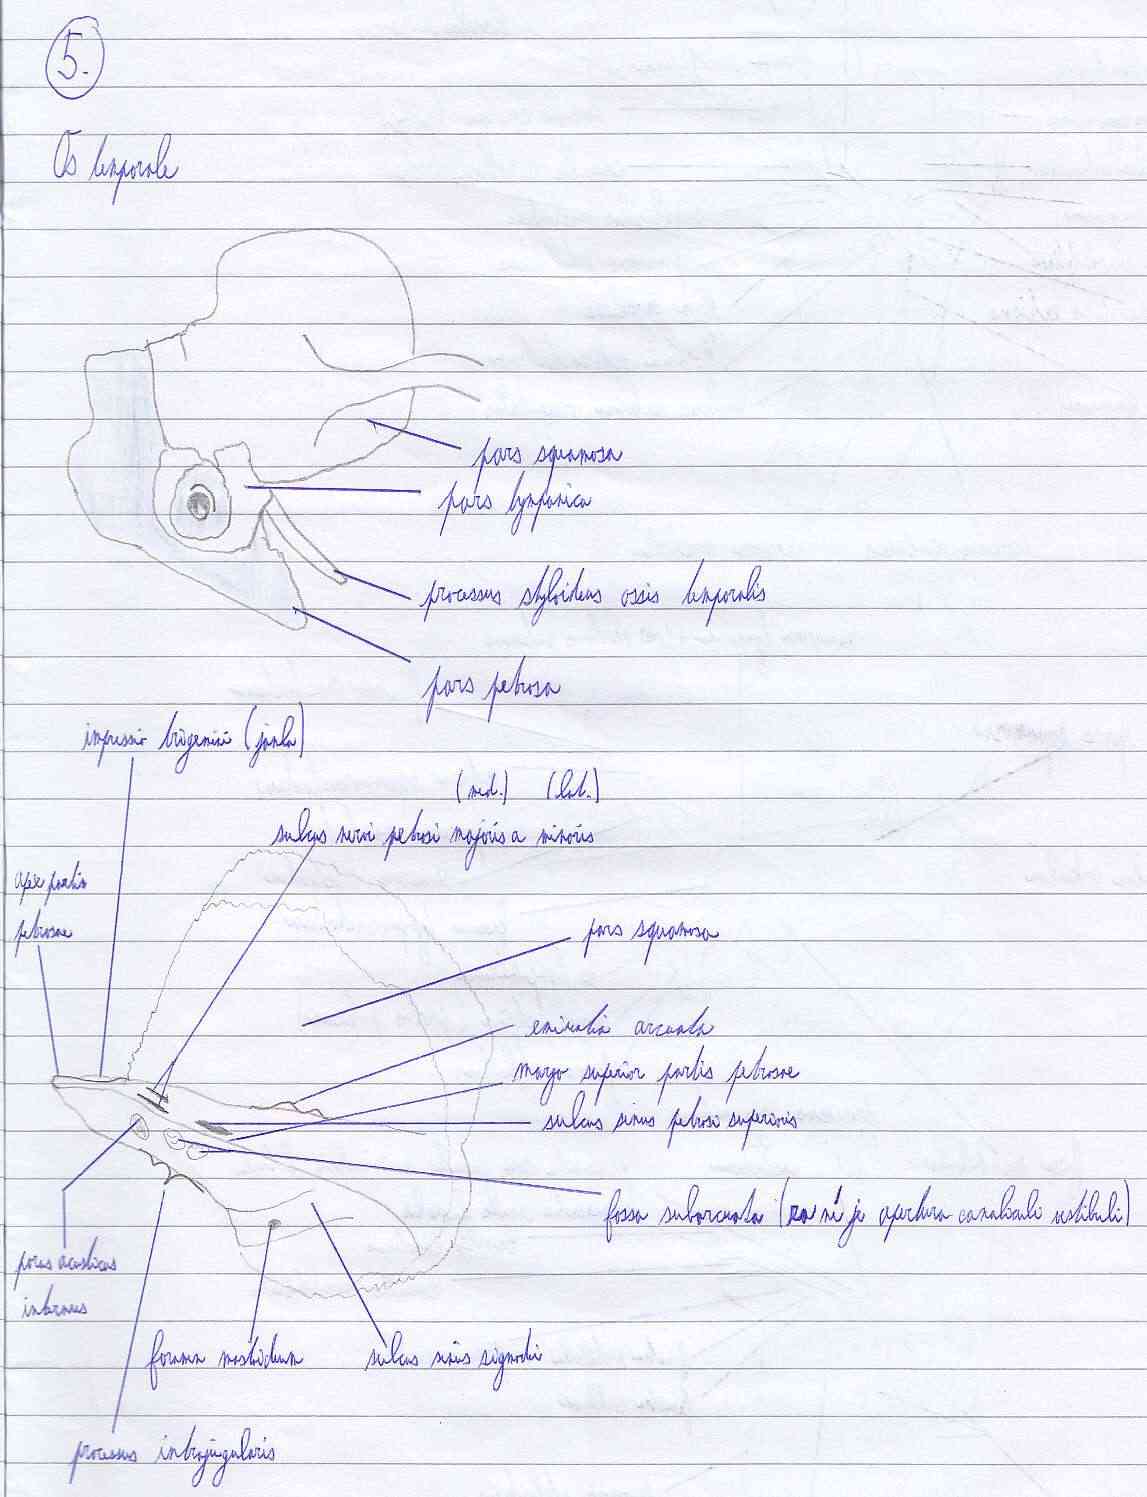 5.
Os temporale
pars squamosa
pars tympanica
processus styloideus ossis temporalis
pars petrosa
impressio trigemini (jamka)
(med.) (lat.)
sulcus nervi petrosi majoris a minoris
apex partis
petrosae
pars squamosa
eminentia arcuata
margo superior partis petrosae
sulcus sinus petrosi superioris
fossa subarcuata (za ní je apertura canaliculi vestibuli)
porus acusticus
internus
foramen mastoideum
sulcus sinus sigmoidei
processus intrajugularis